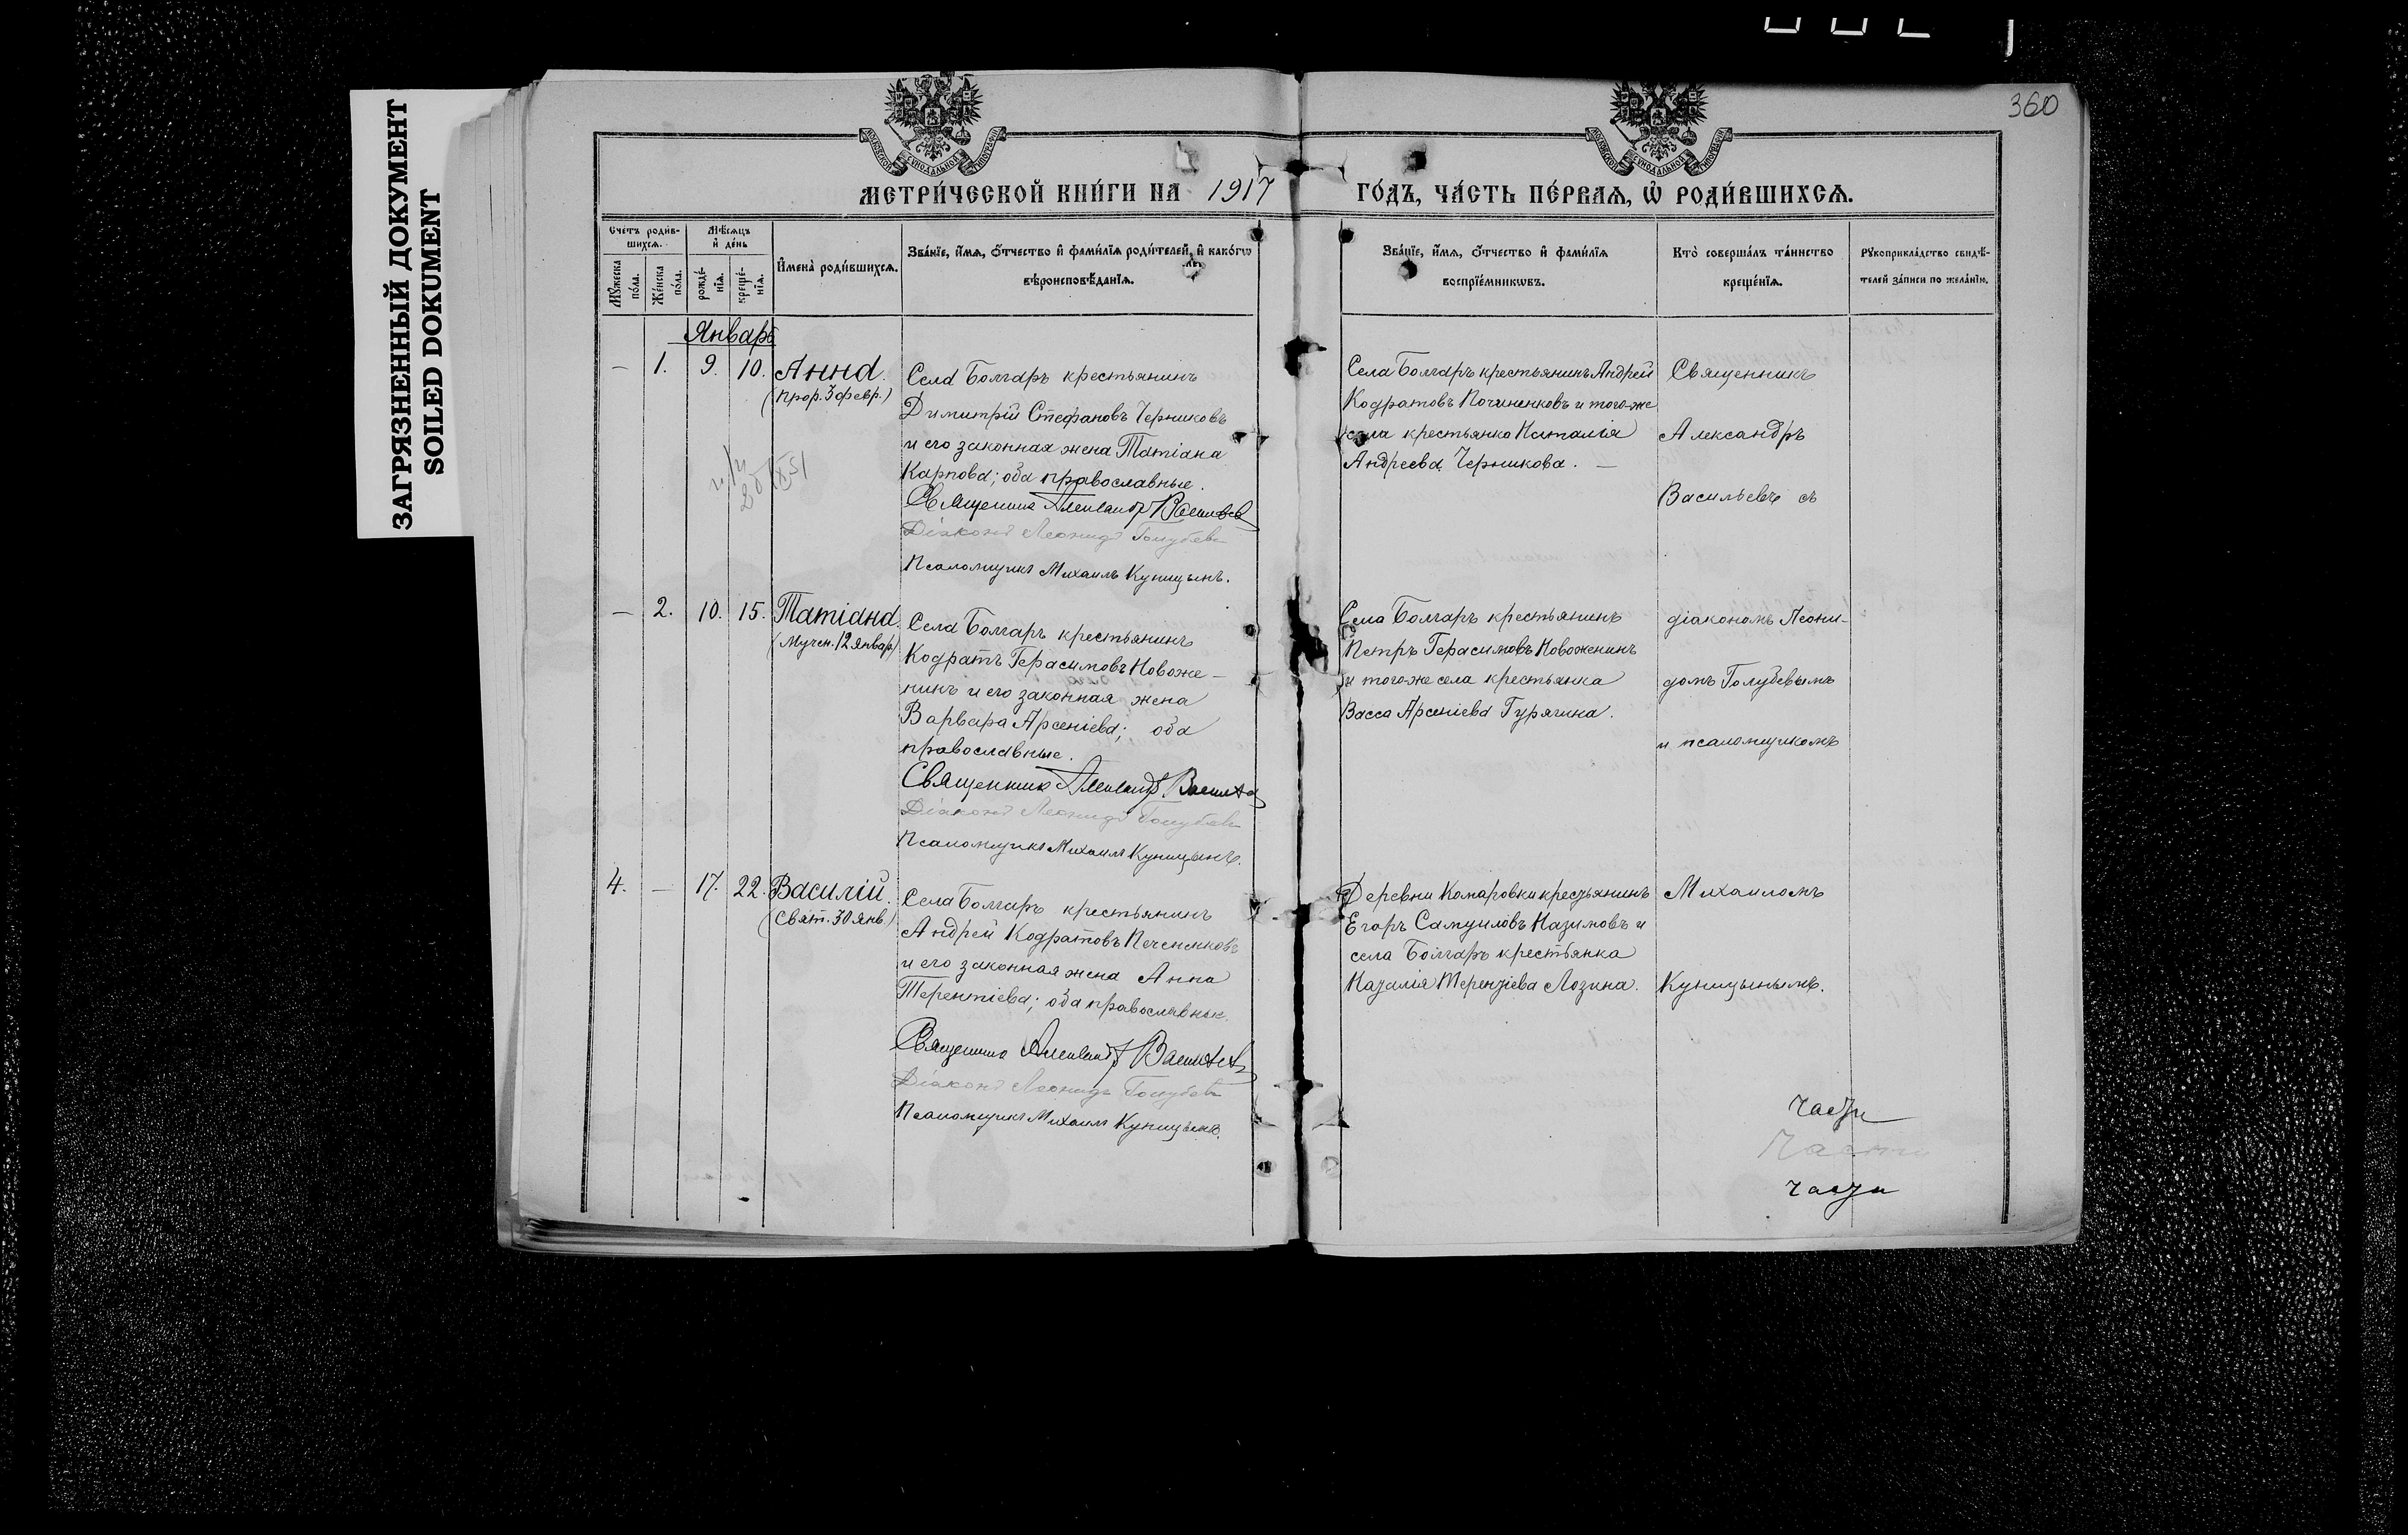 360
ЗАГРЯЗНЕННЫЙ ДОКУМЕНТ
SOILED DOKUMENT
МОСКОВСКОЙ СѴНОДАЛЬНОЙ ТИПОГРАФІИ
МОСКОВСКОЙ СѴНОДАЛЬНОЙ ТИПОГРАФІИ
МЕТРИ́ЧЕСКОЙ КНИ́ГИ НА 1917 ГО́ДЪ, ЧА́СТЬ ПЕ́РВАЯ, Ѡ҆ РОДИ́ВШИХСѦ.
Сче́тъ роди́в-
шихсѧ.
Мꙋ́жеска
по́ла.
Же́нска
по́ла.
Мѣ́сѧцъ
и҆ де́нь
рожде́-
нїѧ.
креще́-
нїѧ.
И҆мена̀ роди́вшихсѧ.
Зва́нїе, и҆́мѧ, ѻ҆́тчество и҆ фами́лїѧ роди́телей, и҆ како́гѡ
вѣроисповѣ́данїѧ.
Зва́нїе, и҆́мѧ, ѻ҆́тчество и҆ фами́лїѧ
воспрїе́мникѡвъ.
Кто̀ соверша́лъ та́инство
креще́нїѧ.
Рꙋкоприкла́дство свидѣ́-
телей за́писи по жела́нїю.
Январь
— 1. 9. 10. Анна.
(прор. 3 февр.)
Села Болгаръ крестьянинъ
Димитрій Стефановъ Черниковъ
и его законная жена Татіана
Карпова; оба православные.
Священникъ Александръ Васильевъ
Діаконъ Леонидъ Голубевъ
Псаломщикъ Михаилъ Куницынъ.
Села Болгаръ крестьянинъ Андрей
Кодратовъ Починенковъ и того-же
села крестьянка Наталія
Андреева Черникова. —
Священникъ
Александръ
Васильевъ съ
— 2. 10. 15. Татіана.
(Мучен. 12 январ.)
Села Болгаръ крестьянинъ
Кодратъ Герасимовъ Новоже-
нинъ и его законная жена
Варвара Арсеніева; оба
православные.
Священникъ Александръ Васильевъ
Діаконъ Леонидъ Голубевъ
Псаломщикъ Михаилъ Куницынъ.
Села Болгаръ крестьянинъ
Петръ Герасимовъ Новоженинъ
и того-же села крестьянка
Васса Арсеніева Гурягина.
діакономъ Леони-
домъ Голубевымъ
и псаломщикомъ
4. — 17. 22. Василій.
(Свят. 30 янв.)
Села Болгаръ крестьянинъ
Андрей Кодратовъ Печененковъ
и его законная жена Анна
Терентіева; оба православные.
Священникъ Александръ Васильевъ
Діаконъ Леонидъ Голубевъ
Псаломщикъ Михаилъ Куницынъ.
Деревни Комаровки крестьянинъ
Егоръ Самуиловъ Назимовъ и
села Болгаръ крестьянка
Наталія Терентіева Лозина.
Михаиломъ
Куницынымъ.
части
Части
части